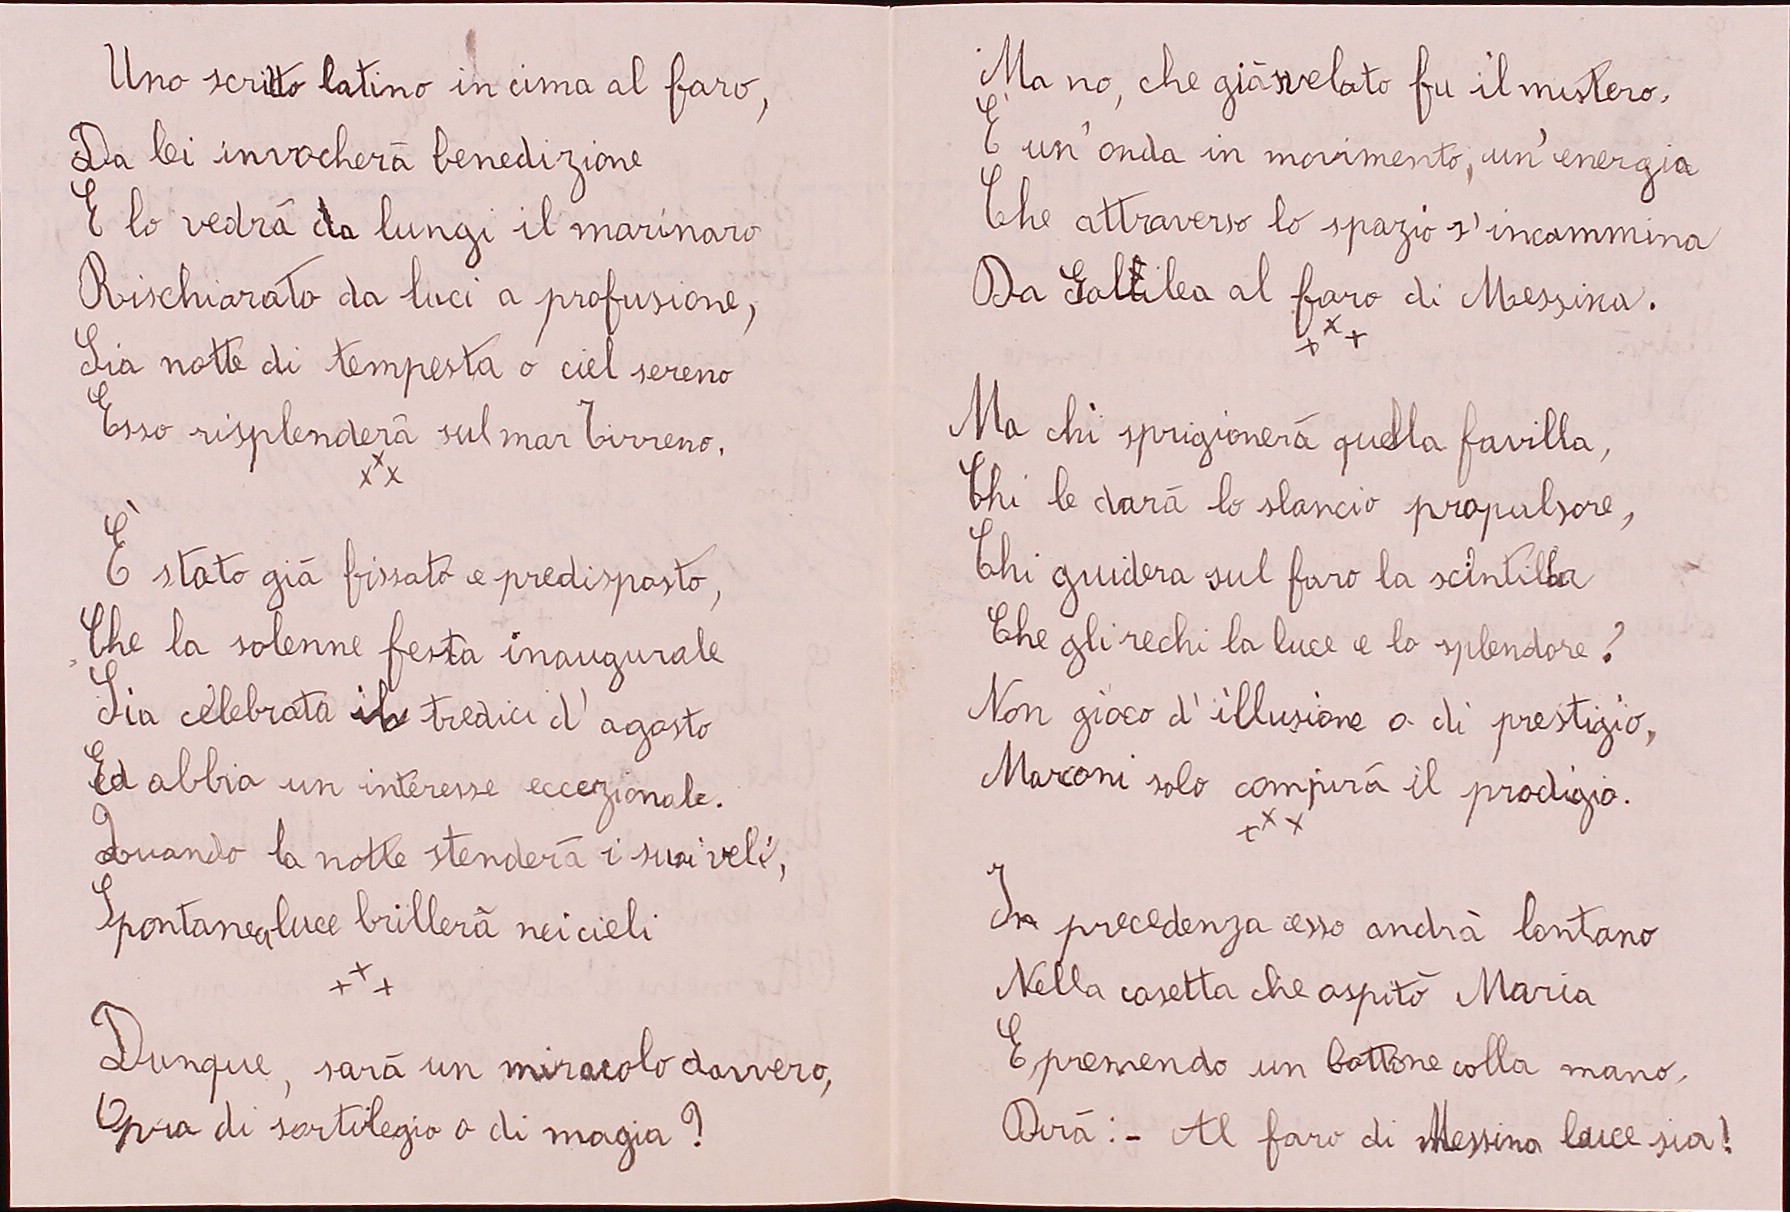 Uno scritto latino in cima al faro,
Da lei invocherà benedizione
E lo vedrà da lungi il marinaro
Rischiarato da luci a profusione,
Sia notte di tempesta o ciel sereno
Esso risplenderà sul mar Tirreno.
x x x
È stato già fissato e predisposto,
Che la solenne festa inaugurale
Sia celebrata il tredici d'agosto
Ed abbia un interesse eccezionale.
Quando la notte stenderà i suoi veli,
Spontanea luce brillerà nei cieli
+ x +
Dunque, sarà un miracolo davvero,
Opra di sortilegio o di magia?
Ma no, che già svelato fu il mistero.
È un'onda in movimento, un'energia
Che attraverso lo spazio s'incammina
Da Galilea al faro di Messina.
+ x +
Ma chi sprigionerà quella favilla,
Chi le darà lo slancio propulsore,
Chi guidera sul faro la scintilla
Che gli rechi la luce e lo splendore?
Non gioco d'illusione o di prestigio,
Marconi solo compirà il prodigio.
+ x x
In precedenza esso andrà lontano
Nella casetta che ospitò Maria
E premendo un bottone colla mano,
Dirà:- Al faro di Messina luce sia!